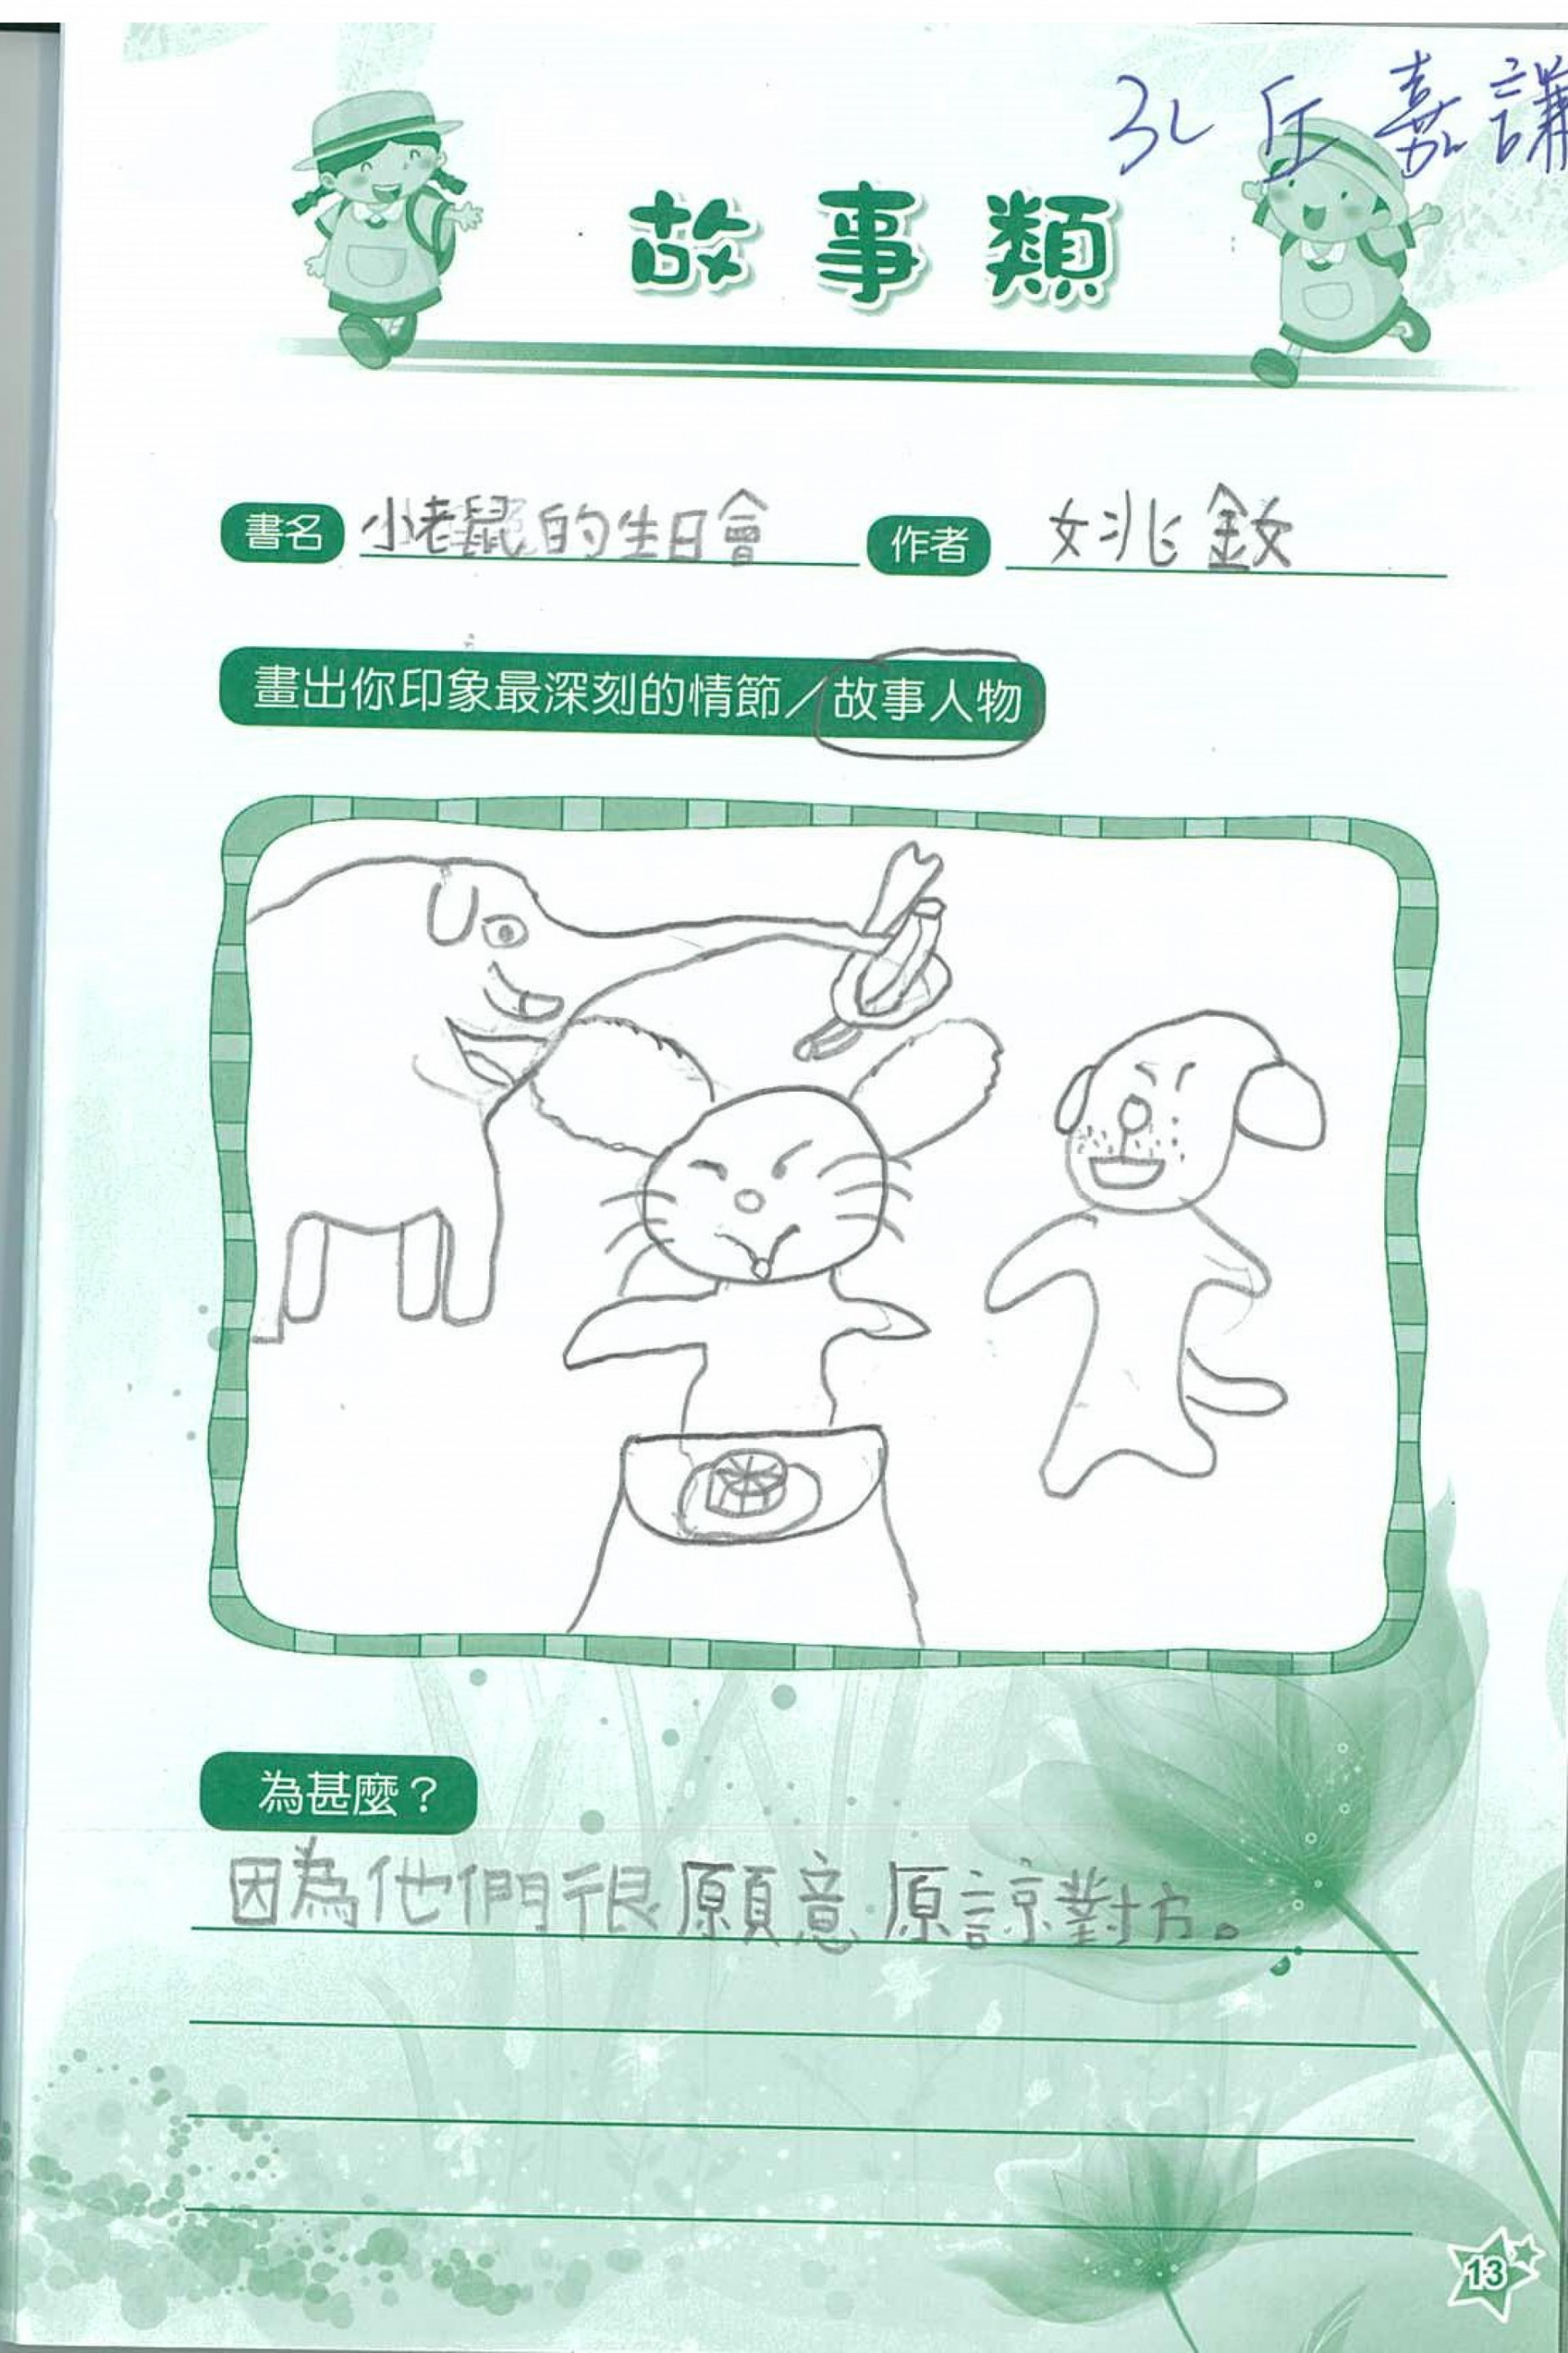 3L 丘嘉謙
故事類
書名 小老鼠的生日會 作者 姚釹
畫出你印象最深刻的情節／故事人物
為甚麼？
因為他們很願意原諒對方。
13